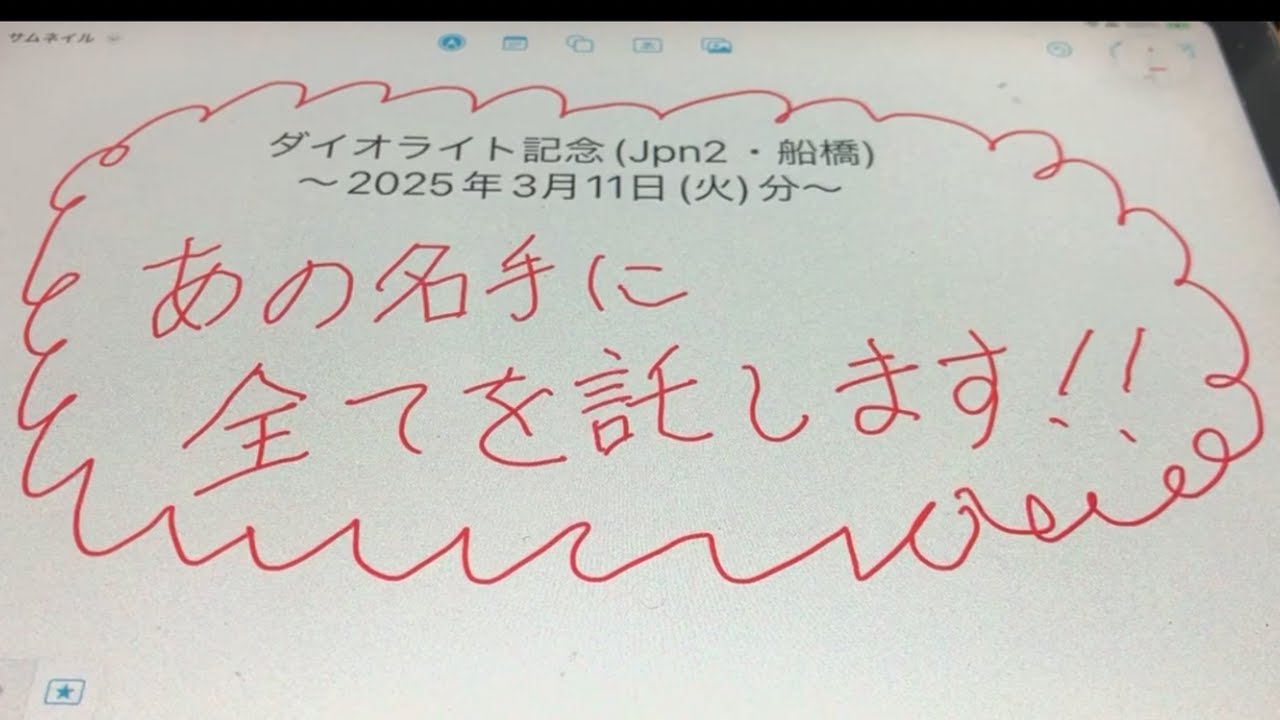 サムネイル
ダイオライト記念(Jpn2・船橋)
〜2025年3月11日(火)分〜
あの名手に
全てを託します!!